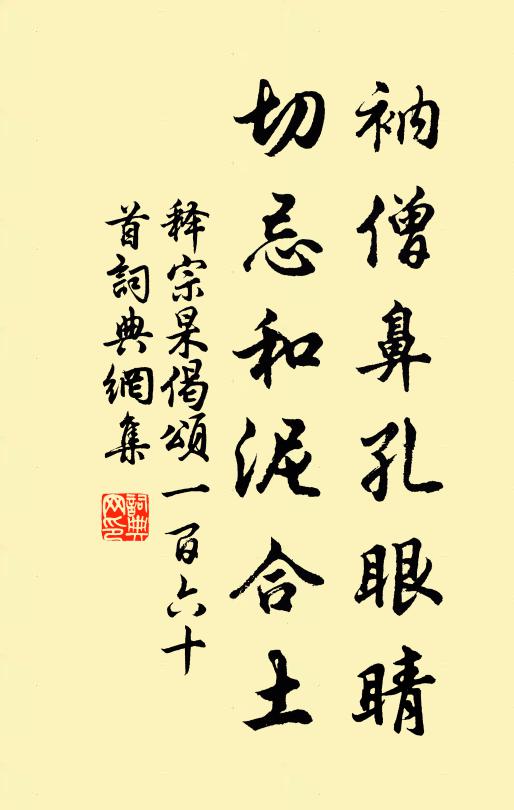 衲僧鼻孔眼睛
切忌和泥合土
释宗杲偈颂一百六十
首詞典網集
詞典
网印